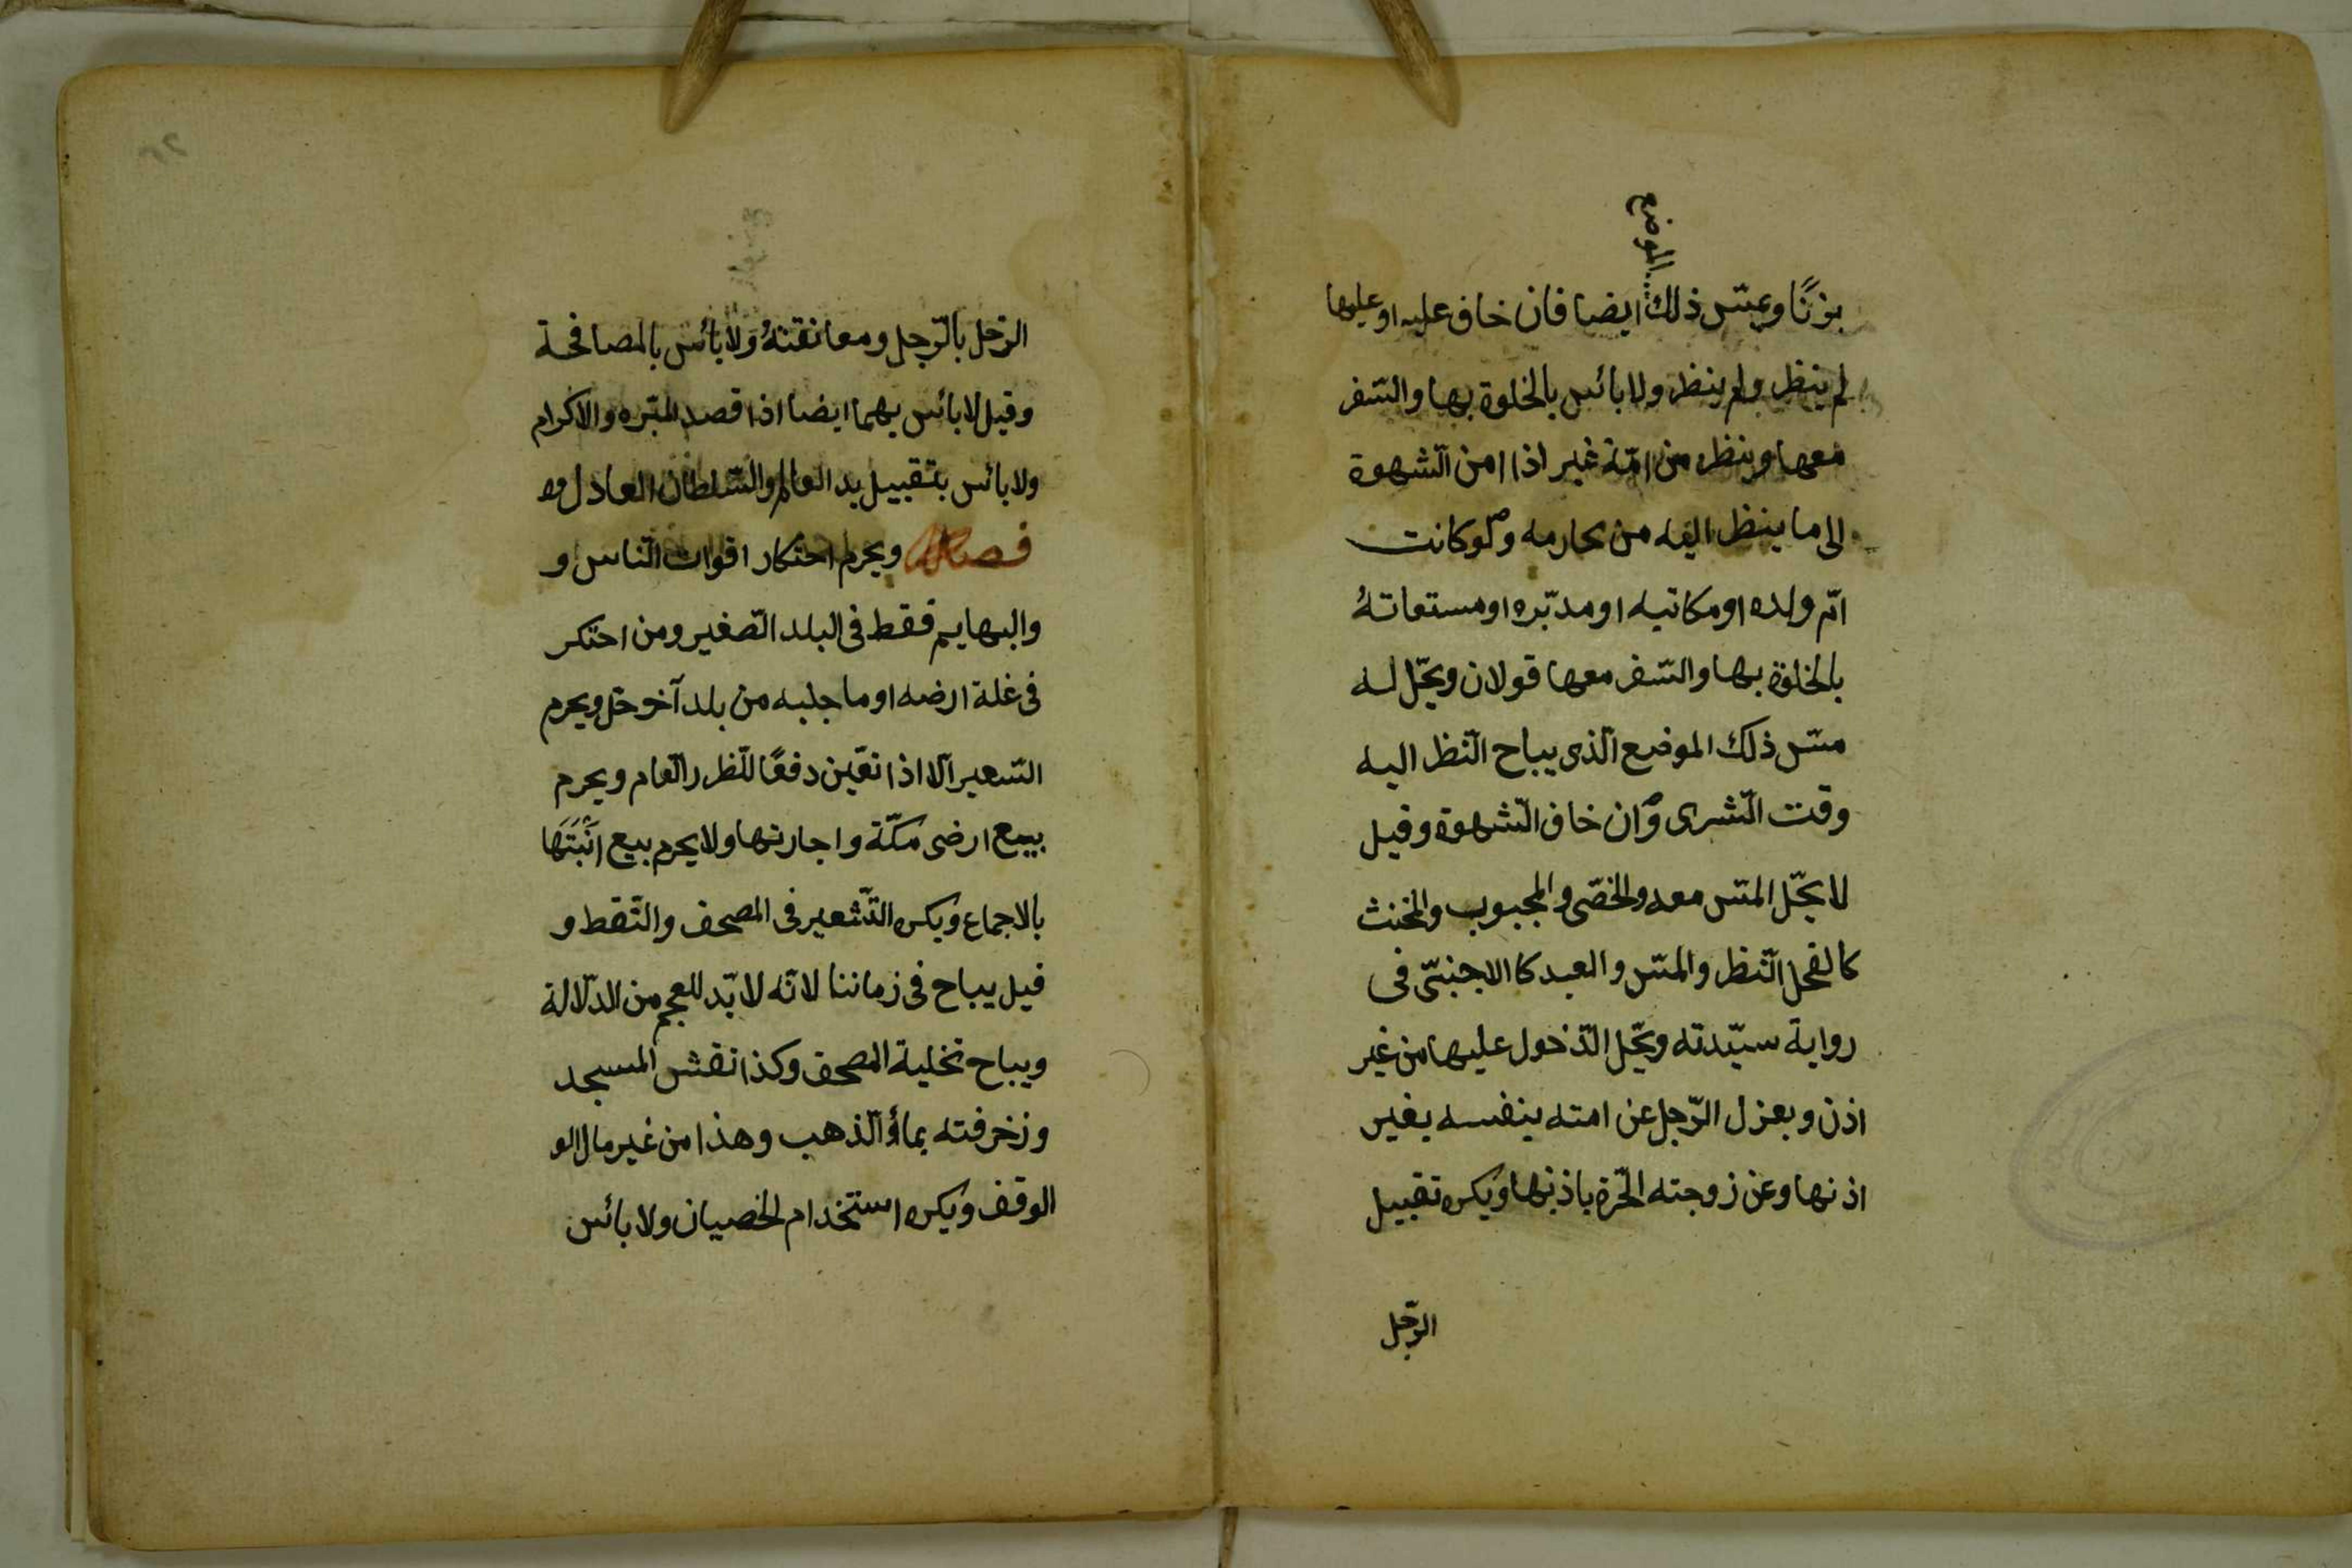 الموضع
بزنًا ويمسّ ذلك ايضا فان خاف عليه او عليها
لم ينظر ولم ينظر ولا بائس بالخلوة بها والسّفر
معها وينظر من امّة غير اذا امن الشّهوة
الى ما ينظر اليه من محارمه ولو كانت
امّ ولده او مكاتبه او مدبّره او مستعاتهُ
بالخلوة بها والسّفر معها قولان ويحّل له
مسّ ذلك الموضع الّذى يباح النّظر اليه
وقت الشّرى وان خاف الشّهوة وقيل
لا يحّل المسّ معه والخصّى والمجبوب والمخنث
كالفحل النّظر والمسّ والعبد كالاجنبىّ فى
رواية سيّدته ويحّل الدّخول عليها من غير
اذن ويعزل الرّجل عن امته بنفسه بغير
اذنها وعن زوجته الحّرة باذنها ويكره تقبيل
الرّجل
الرّجل بالرّجل ومعانقتهُ ولا بائس بالمصافحة
وقيل لا بائس بهما ايضا اذا قصد المبّره والاكرام
ولا بائس بتقبيل يد العالم والسّلطان العادل
فصل ويحرم احتكار اقوات النّاس و
والبهايم فقط فى البلد الصّغير ومن احتكر
فى غلة ارضه او ما جلبه من بلد آخر حل ويحرم
التّسعير الّا اذا تعّين دفعًا للّظرر العّام ويحرم
بيع ارضى مكّة واجارتها ولا يحرم بيع ابنَتَهَا
بالاجماع ويكره التّشعير فى المصحف والنّقط و
قيل يباح فى زماننا لانّه لابّد للعجم من الدّلالة
ويباح تخلية المصحف وكذا نقش المسجد
وزخرفته بماؤ الّذهب وهذا من غير مال الو
الوقف ويكره استخدام الخصيان ولا بائس